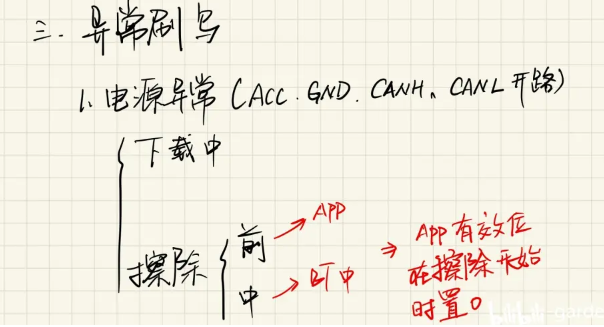 三. 异常刷写
1. 电源异常 (ACC. GND. CANH、CANL 开路)
下载中
擦除
前 → APP
中 → BT中
⇒ APP有效位
在擦除开始
时置0
bilibili garde